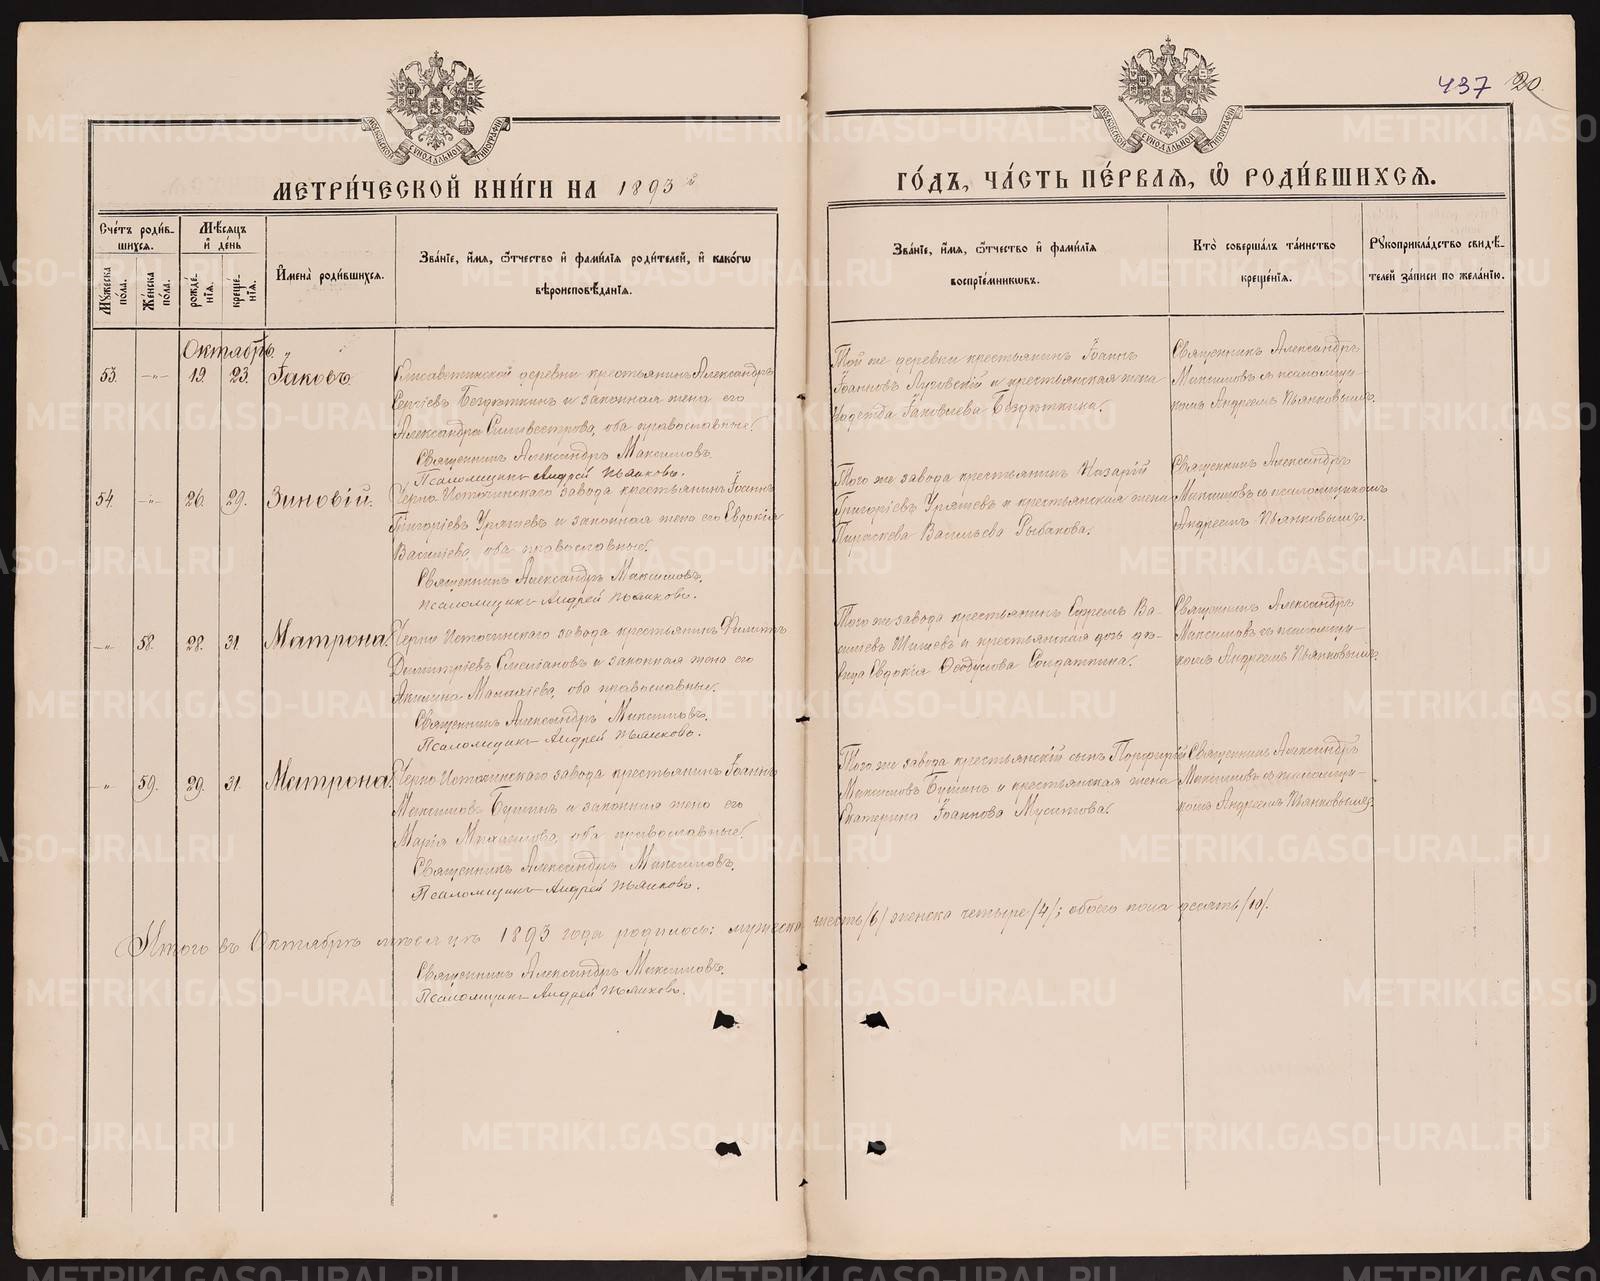 437 20
МОСКОВСКОЙ СѴНОДАЛЬНОЙ ТИПОГРАФІИ
МОСКОВСКОЙ СѴНОДАЛЬНОЙ ТИПОГРАФІИ
МЕТРИ́ЧЕСКОЙ КНИ́ГИ НА 1893й
ГО́ДЪ, ЧА́СТЬ ПЕ́РВАЯ, Ѡ РОДИ́ВШИХСЯ.
Сче́тъ роди́в-
шихся.
Мꙋ́жеска по́ла.
Же́нска по́ла.
Мѣ́сяцъ и҆ де́нь
рожде́-нїя.
креще́-нїя.
И҆мена̀ роди́вшихся.
Зва́нїе, и҆́мя, ѻ҆́тчество и҆ фами́лїя роди́телей, и҆ како́гѡ
вѣроисповѣ́данїя.
Зва́нїе, и҆́мя, ѻ҆́тчество и҆ фами́лїя
воспрїе́мникѡвъ.
Кто̀ соверша́лъ та́инство
креще́нїя.
Рꙋкоприкла́дство свидѣ́-
телей за́писи по жела́нїю.
Октябрь
53. -"- 19. 23. Іаковъ.
Елисаветинской деревни крестьянинъ Александръ
Сергіевъ Бездѣткинъ и законная жена его
Александра Сильвестрова, оба православные.
Священникъ Александръ Максимовъ.
Псаломщикъ Андрей Пьянковъ.
Той же деревни крестьянинъ Іоаннъ
Іоанновъ Луговскій и крестьянская жена
Надежда Іаковлева Бездѣткина.
Священникъ Александръ
Максимовъ съ псаломщи-
комъ Андреемъ Пьянковымъ.
54. -"- 26. 29. Зиновій.
Черно Источинскаго завода крестьянинъ Іоаннъ
Григоріевъ Уряшевъ и законная жена его Евдокія
Василіева, оба православные.
Священникъ Александръ Максимовъ.
Псаломщикъ Андрей Пьянковъ.
Того же завода крестьянинъ Назарій
Григоріевъ Уряшевъ и крестьянская жена
Параскева Васильева Рыбакова.
Священникъ Александръ
Максимовъ съ псаломщикомъ
Андреемъ Пьянковымъ.
-"- 58. 28. 31. Матрона.
Черно Источинскаго завода крестьянинъ Филиппъ
Димитріевъ и законная жена его
Акилина Малахіева, оба православные.
Священникъ Александръ Максимовъ.
Псаломщикъ Андрей Пьянковъ.
Того же завода крестьянинъ Ефремъ Ва-
силіевъ Шишевъ и крестьянская дочь дѣ-
вица Евдокія Ѳеодулова Солдаткина.
Священникъ Александръ
Максимовъ съ псаломщи-
комъ Андреемъ Пьянковымъ.
-"- 59. 29. 31. Матрона.
Черно Источинскаго завода крестьянинъ Іоаннъ
Максимовъ Бушинъ и законная жена его
Марія Михаилова, оба православные.
Священникъ Александръ Максимовъ.
Псаломщикъ Андрей Пьянковъ.
Того же завода крестьянскій сынъ Порфирій
Максимовъ Бушинъ и крестьянская жена
Екатерина Іоаннова Мусатова.
Священникъ Александръ
Максимовъ съ псаломщи-
комъ Андреемъ Пьянковымъ.
Итого въ Октябрѣ мѣсяцѣ 1893 года родилось: мужеска шесть /6/ женска четыре /4/; обоего пола десять /10/.
Священникъ Александръ Максимовъ.
Псаломщикъ Андрей Пьянковъ.
METRIKI.GASO-URAL.RU